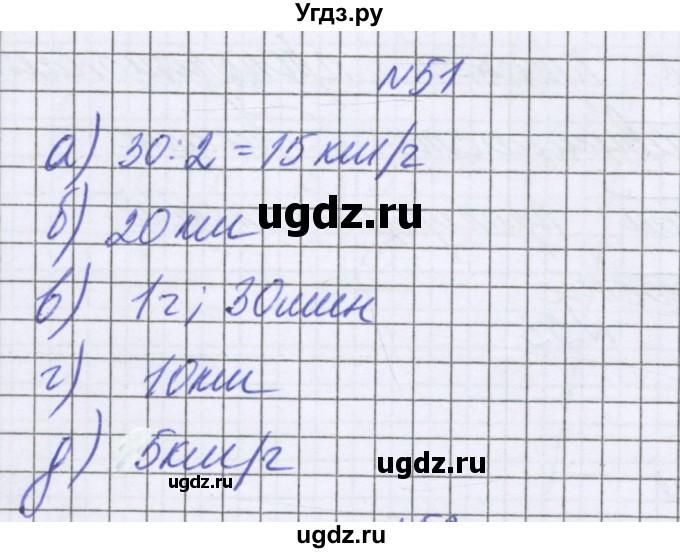 Угдз.ру
№51
а) 30:2=15км/г
б) 20км
ugdz.ru
в) 1г; 30мин
г) 10км
д) 5км/г
ugdz.ru
ugdz.ru
ugdz.ru